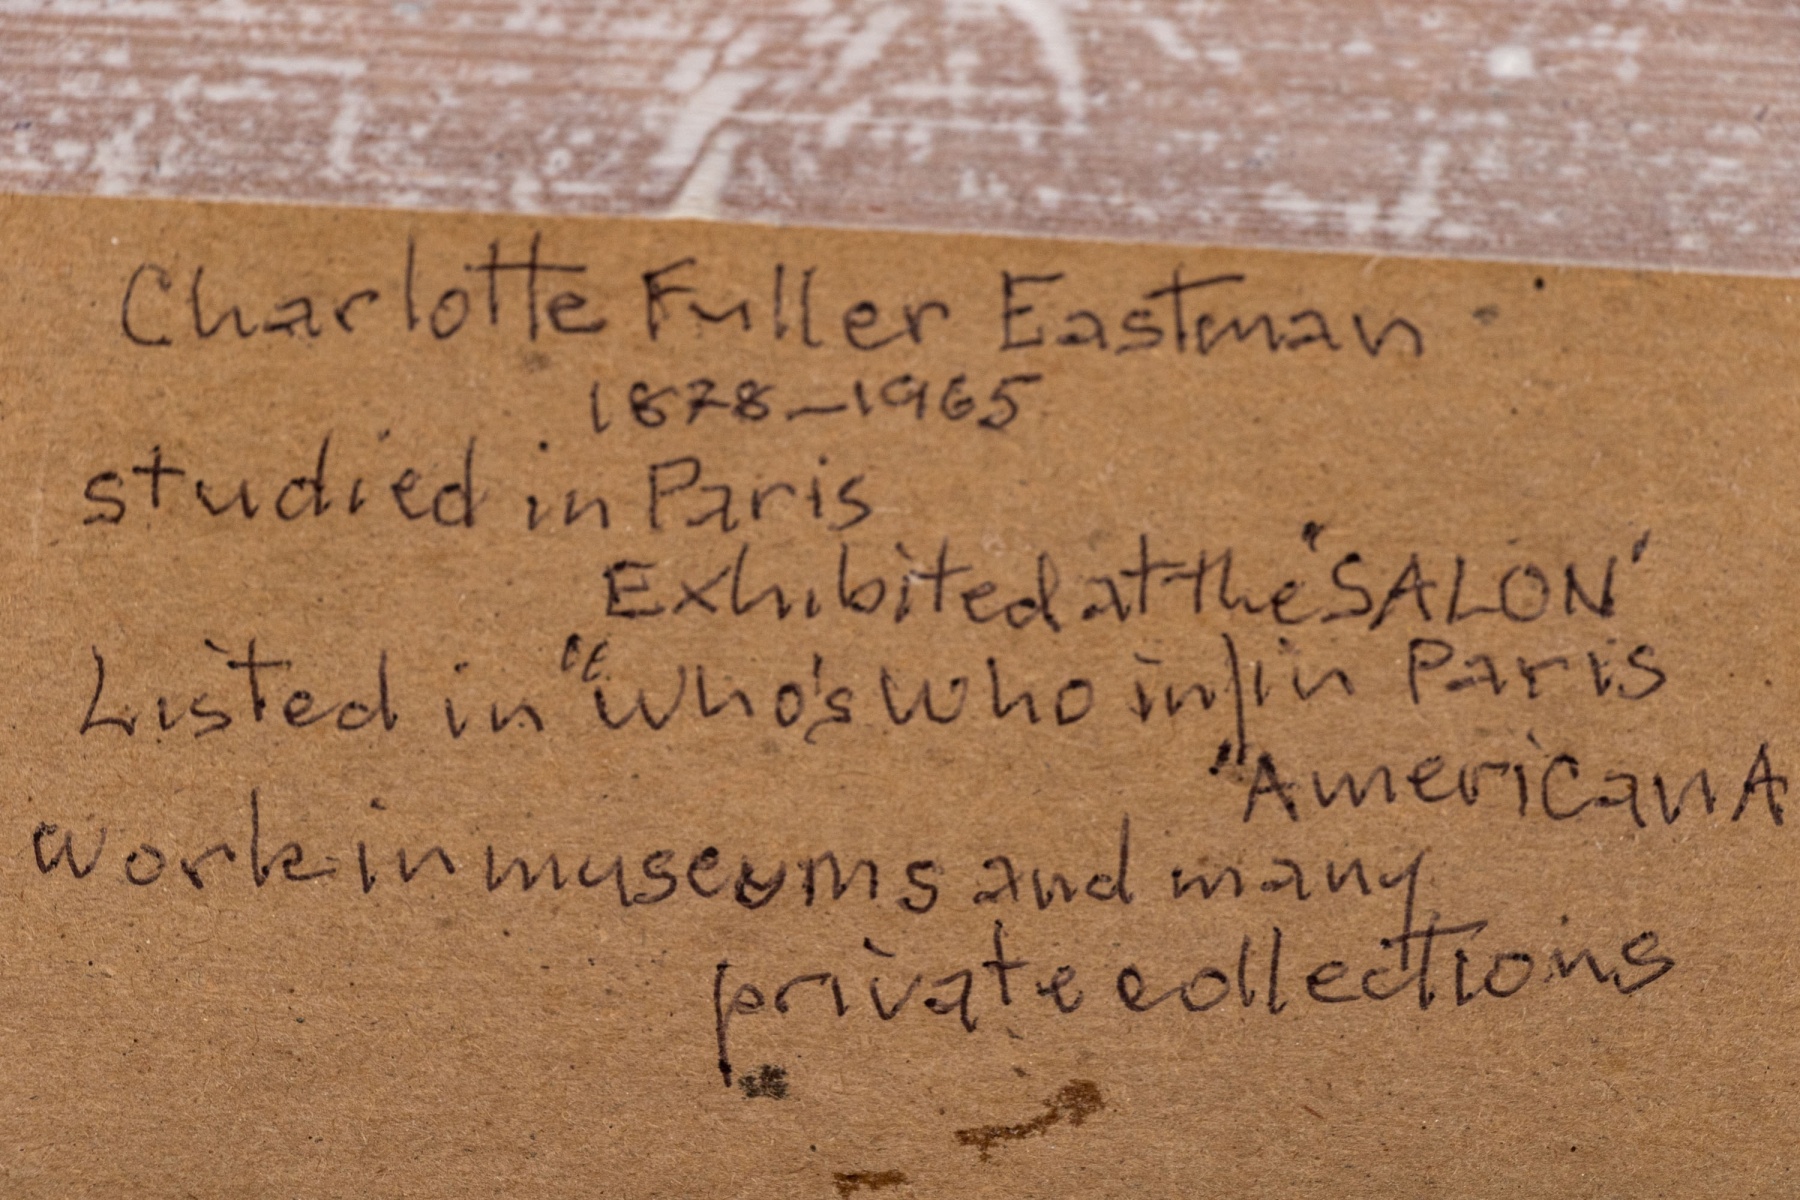 Charlotte Fuller Eastman
1878-1965
studied in Paris
Exhibited at the "SALON"
Listed in "Who's Who in) in Paris
"American A
Work in museums and many
private collections